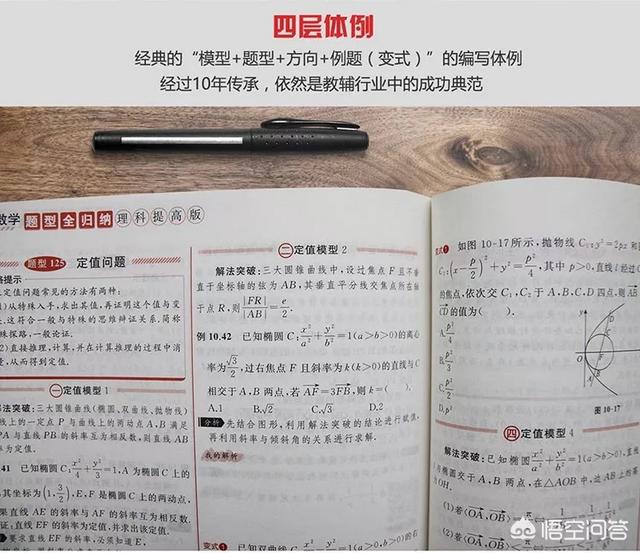 四层体例
经典的“模型+题型+方向+例题（变式）”的编写体例
经过10年传承，依然是教辅行业中的成功典范
数学 题型全归纳 理科提高版
题型 125 定值问题
定值问题常见的方法有两种：
)从特殊入手，求出其值，再证明这个值与变
.这符合一般与特殊的思维辩证关系，简称
殊探路，一般论证.
(2)直接推理、计算，并在计算推理的过程中消
量，从而得到定值.
一 定值模型 1
法突破：三大圆锥曲线（椭圆、双曲线、抛物线）
线上的一定点 P 与曲线上的两动点 A,B 满足
PA 与直线 PB 的斜率互为相反数，则直线 AB
率为定值.
41 已知椭圆 C: x²/4 + y²/3 = 1，A 为椭圆 C 上的
其坐标为 (1, 3/2)，E,F 是椭圆 C 上的两动点，
果直线 AE 的斜率与 AF 的斜率互为相反数.
证：直线 EF 的斜率为定值，并求出该定值.
要求直线 EF 的斜率，必须知道 E，
二 定值模型 2
解法突破：三大圆锥曲线中，设过焦点 F 且不垂
直于坐标轴的弦为 AB，其垂直平分线交焦点所在轴
于点 R，则 |FR|/|AB| = e/2.
例 10.42 已知椭圆 C: x²/a² + y²/b² = 1(a>b>0)的离心
率为 √3/2，过右焦点 F 且斜率为 k(k>0)的直线与 C
相交于 A，B 两点，若 AF→=3FB→，则 k=( ).
A.1 B.√2 C.√3 D.2
分析 先结合图形，利用解法突破的结论进行赋值，
再利用斜率与倾斜角的关系进行求解.
我的解析
变式 1 已知双曲线 C
变式 1 如图 10-17 所示，抛物线 C₁:y²=2px 和
C₂:(x-p/2)²+y²=p²/4，其中 p>0，直线 l 经过 C
的焦点，依次交 C₁,C₂ 于 A,B,C,D 四点，则 AB→
CD→的值为( ).
A.p²/4
B.p²/3
C.p²/2
D.p²
y
O
F
x
A
B
图 10-17
四 定值模型 4
解法突破：已知椭圆 x²/a² + y²/b² = 1(a>b>0)，直线
与椭圆交于 A，B 两点，在△AOB 中，边 AB 上的
为 OH.
(1)若〈OA→,OB→〉
(2)若〈OA→
悟空问答